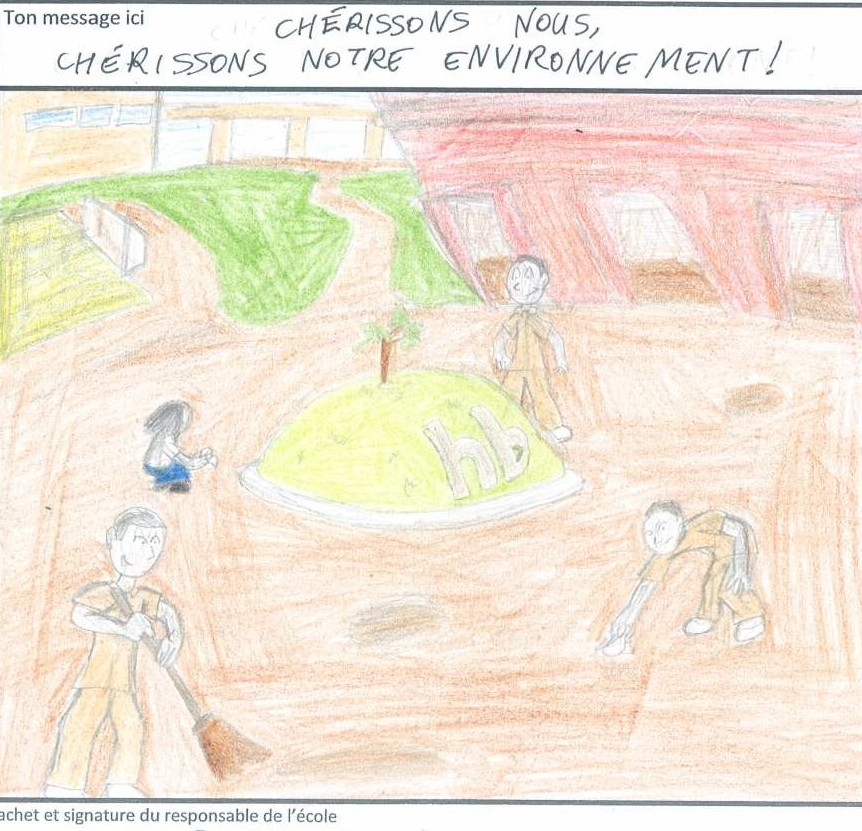 Ton message ici
CHÉRISSONS NOUS,
CHÉRISSONS NOTRE ENVIRONNEMENT!
hb
achet et signature du responsable de l'école